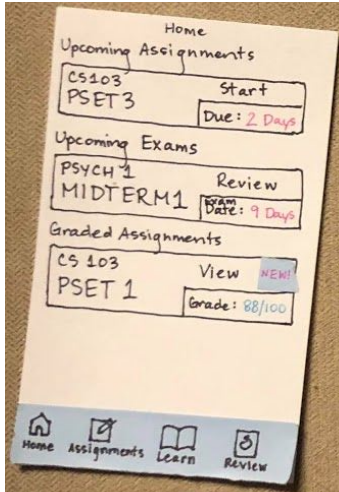 Home
Upcoming Assignments
CS103
Start
PSET 3
Due: 2 Days
Upcoming Exams
PSYCH 1
Review
MIDTERM1
Exam
Date: 9 Days
Graded Assignments
CS 103
View NEW!
PSET 1
Grade: 88/100
Home Assignments Learn Review